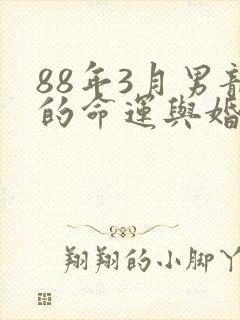 88年3月男龍
的命運與婚
翔翔的小脚丫